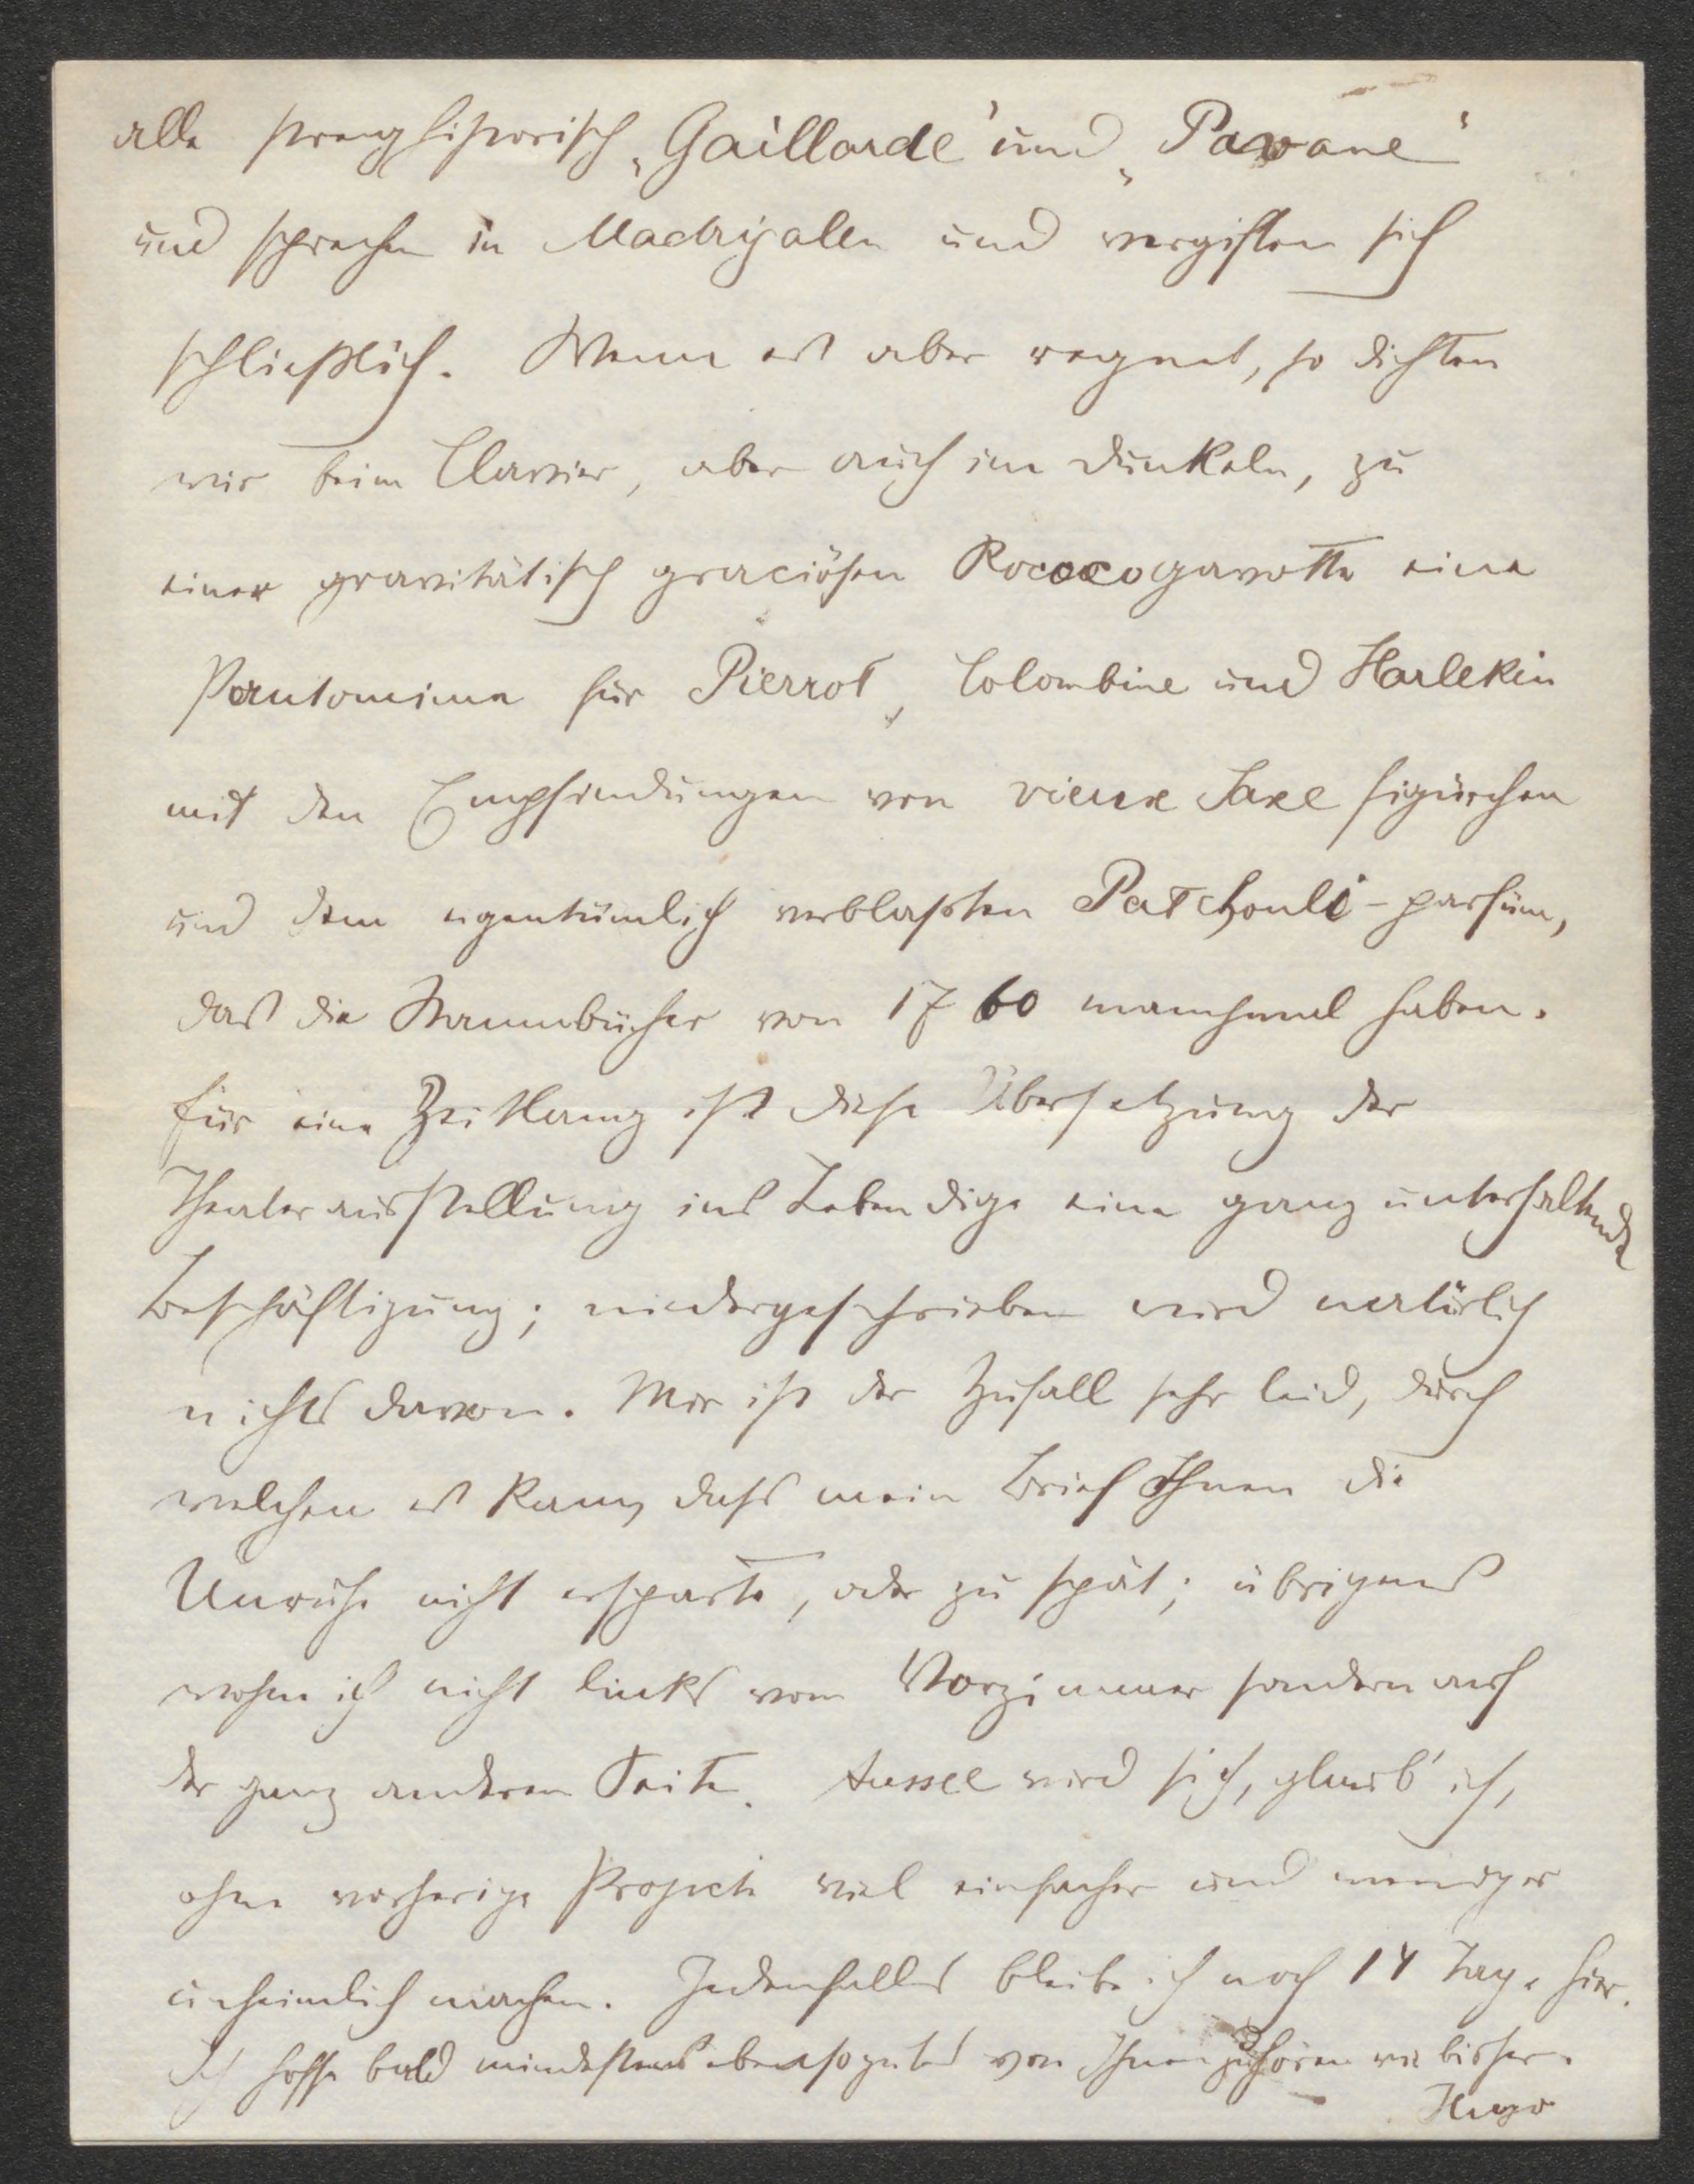 alle streng historisch „Gaillarde" und „Pavane"
und sprechen in Madrigalen und vergiften sich
schließlich. Wenn es aber regnet, so dichten
wir beim Clavier, aber auch im Dunkeln, zu
einer gravitätisch graciösen Rococogavotte eine
Pantomime für Pierrot, Colombine und Harlekin
mit den Empfindungen von vieux Saxe figürchen
und dem eigentümlich verblaßten Patchouli-parfüm,
das die Stammbücher von 1760 manchmal haben.
für eine Zeitlang ist diese Übersetzung der
Theaterausstellung ins Lebendige eine ganz unterhaltende
Beschäftigung; niedergeschrieben wird natürlich
nichts davon. Mir ist der Zufall sehr leid, durch
welchen es kam, dass mein Brief Ihnen die
Unruhe nicht ersparte, oder zu spät; übrigens
wohne ich nicht links vom Vorzimmer sondern auf
der ganz anderen Seite. Aussee wird sich, glaub' ich,
ohne vorherige Projecte viel einfacher und weniger
unheimlich machen. Jedenfalls bleibe ich noch 14 Tage hier.
Ich hoffe bald mindestens ebensogutes von Ihnen zu hören wie bisher.
Hugo